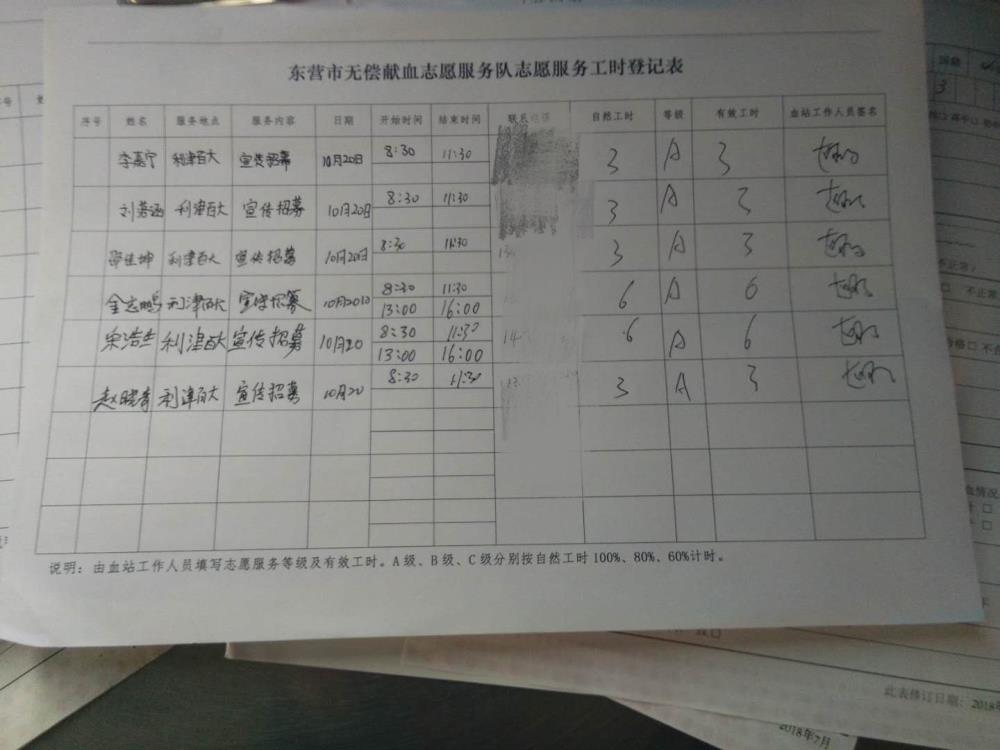 东营市无偿献血志愿服务队志愿服务工时登记表
序号 姓名 服务地点 服务内容 日期 开始时间 结束时间 联系电话 自然工时 等级 有效工时 血站工作人员签名
李嘉宁 利津百大 宣传招募 10月20日 8:30 11:30 3 A 3
刘 利津百大 宣传招募 10月20日 8:30 11:30 3 A 3
邵佳坤 利津百大 宣传招募 10月20日 8:30 11:30 3 A 3
金志鹏 利津百大 宣传招募 10月20日 8:30 11:30 6 A 6
13:00 16:00
宋浩杰 利津百大 宣传招募 10月20 8:30 11:30 6 A 6
13:00 16:00
赵晓青 利津百大 宣传招募 10月20 8:30 11:30 3 A 3
说明：由血站工作人员填写志愿服务等级及有效工时。A级、B级、C级分别按自然工时100%、80%、60%计时。
国籍
3
不正常
此表修订日期：2018年
2018年7月